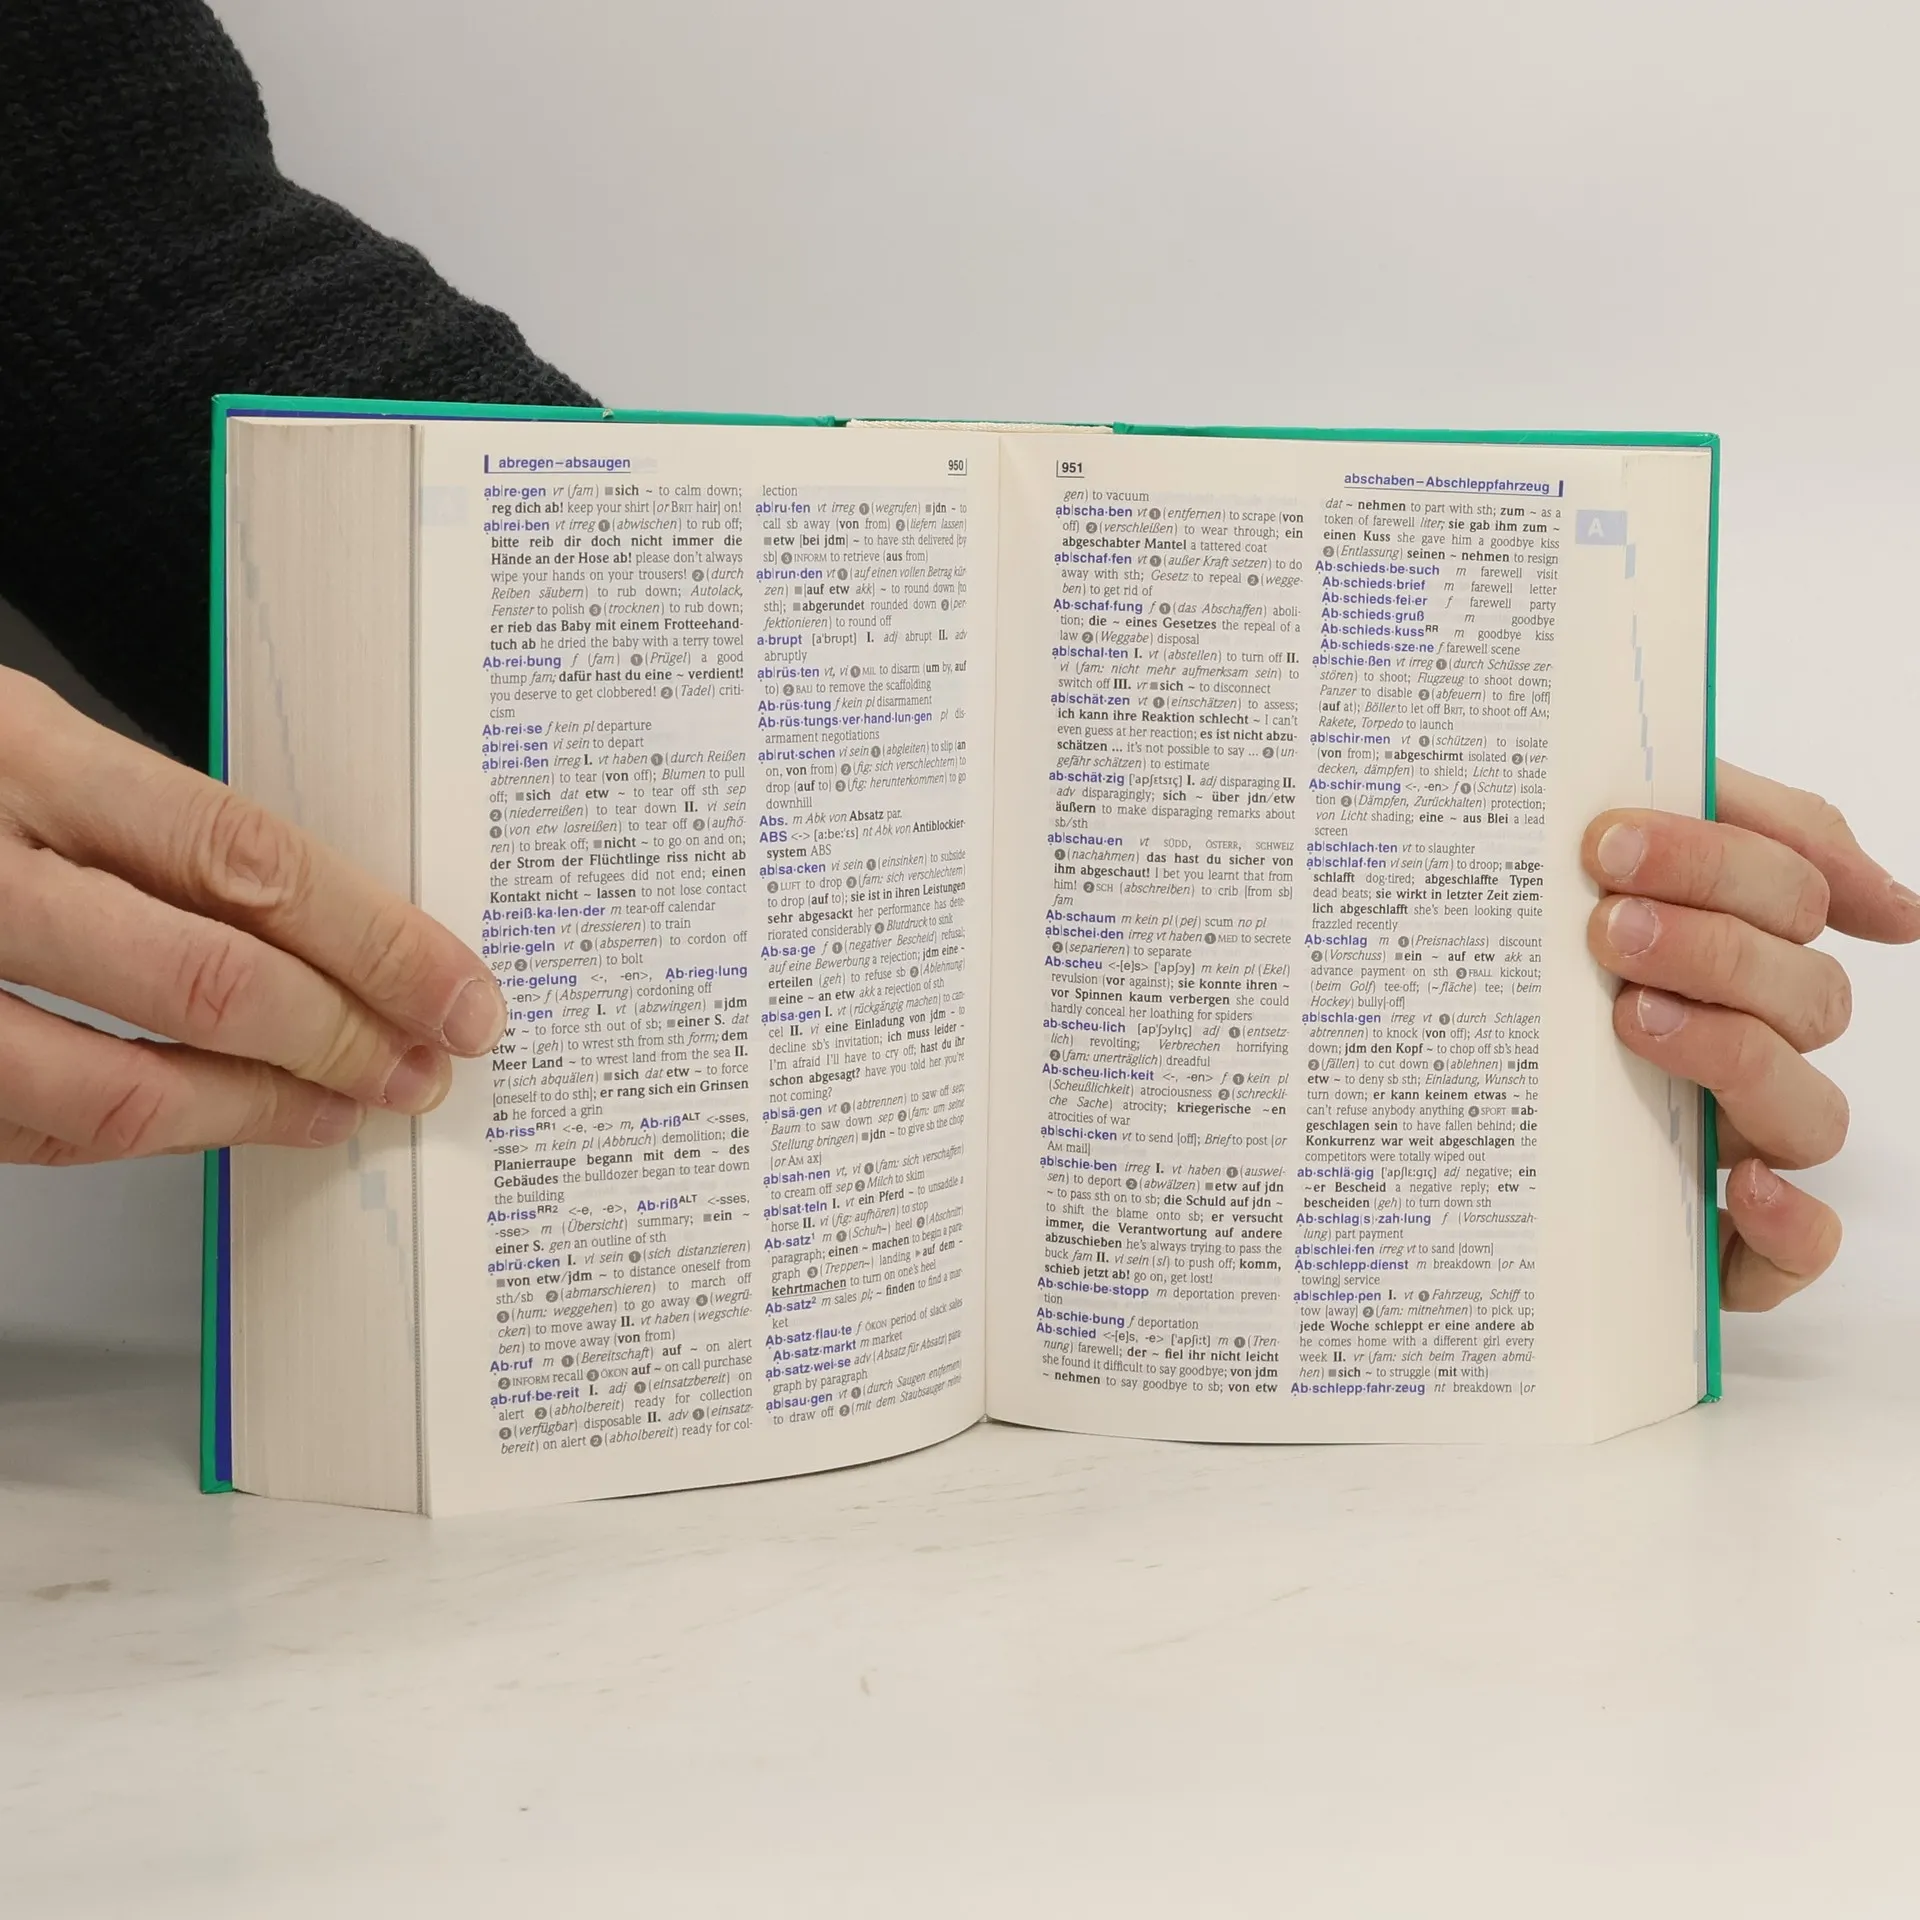 abregen–absaugen
950
ab|re·gen vr (fam) ■sich ~ to calm down;
reg dich ab! keep your shirt [or BRIT hair] on!
ab|rei·ben vt irreg ❶ (abwischen) to rub off;
bitte reib dir doch nicht immer die
Hände an der Hose ab! please don't always
wipe your hands on your trousers! ❷ (durch
Reiben säubern) to rub down; Autolack,
Fenster to polish ❸ (trocknen) to rub down;
er rieb das Baby mit einem Frotteehand-
tuch ab he dried the baby with a terry towel
Ab·rei·bung f (fam) ❶ (Prügel) a good
thump fam; dafür hast du eine ~ verdient!
you deserve to get clobbered! ❷ (Tadel) criti-
cism
Ab·rei·se f kein pl departure
ab|rei·sen vi sein to depart
ab|rei·ßen irreg I. vt haben ❶ (durch Reißen
abtrennen) to tear (von off); Blumen to pull
off; ■sich dat etw ~ to tear off sth sep
❷ (niederreißen) to tear down II. vi sein
❶ (von etw losreißen) to tear off ❷ (aufhö-
ren) to break off; ■nicht ~ to go on and on;
der Strom der Flüchtlinge riss nicht ab
the stream of refugees did not end; einen
Kontakt nicht ~ lassen to not lose contact
Ab·reiß·ka·len·der m tear-off calendar
ab|rich·ten vt (dressieren) to train
ab|rie·geln vt ❶ (absperren) to cordon off
sep ❷ (versperren) to bolt
·rie·gelung <-, -en>, Ab·rieg·lung
, -en> f (Absperrung) cordoning off
rin·gen irreg I. vt (abzwingen) ■jdm
~ to force sth out of sb; ■einer S. dat
etw ~ (geh) to wrest sth from sth form; dem
Meer Land ~ to wrest land from the sea II.
vr (sich abquälen) ■sich dat etw ~ to force
[oneself to do sth]; er rang sich ein Grinsen
ab he forced a grin
Ab·riss^RR1 <-e, -e> m, Ab·riß^ALT <-sses,
-sse> m kein pl (Abbruch) demolition; die
Planierraupe begann mit dem ~ des
Gebäudes the bulldozer began to tear down
the building
Ab·riss^RR2 <-e, -e>, Ab·riß^ALT <-sses,
-sse> m (Übersicht) summary; ■ein ~
einer S. gen an outline of sth
ab|rü·cken I. vi sein ❶ (sich distanzieren)
■von etw/jdm ~ to distance oneself from
sth/sb ❷ (abmarschieren) to march off
❸ (hum: weggehen) to go away ❹ (wegrü-
cken) to move away II. vt haben (wegschie-
ben) to move away (von from)
Ab·ruf m ❶ (Bereitschaft) auf ~ on alert
❷ INFORM recall ❸ ÖKON auf ~ on call purchase
ab·ruf·be·reit I. adj ❶ (einsatzbereit) on
alert ❷ (abholbereit) ready for collection
❸ (verfügbar) disposable II. adv ❶ (einsatz-
bereit) on alert ❷ (abholbereit) ready for col-
lection
ab|ru·fen vt irreg ❶ (wegrufen) ■jdn ~ to
call sb away (von from) ❷ (liefern lassen)
■etw [bei jdm] ~ to have sth delivered [by
sb] ❸ INFORM to retrieve (aus from)
ab|run·den vt ❶ (auf einen vollen Betrag kür-
zen) ■[auf etw akk] ~ to round down [to
sth]; ■abgerundet rounded down ❷ (per-
fektionieren) to round off
a·brupt [a'brupt] I. adj abrupt II. adv
abruptly
ab|rüs·ten vt, vi ❶ MIL to disarm (um by, auf
to) ❷ BAU to remove the scaffolding
Ab·rüs·tung f kein pl disarmament
Ab·rüs·tungs·ver·hand·lun·gen pl dis-
armament negotiations
ab|rut·schen vi sein ❶ (abgleiten) to slip (an
on, von from) ❷ (fig: sich verschlechtern) to
drop (auf to) ❸ (fig: herunterkommen) to go
downhill
Abs. m Abk von Absatz par.
ABS <-> [a:be:'ɛs] nt Abk von Antiblockier-
system ABS
ab|sa·cken vi sein ❶ (einsinken) to subside
❷ LUFT to drop ❸ (fam: sich verschlechtern)
to drop (auf to); sie ist in ihren Leistungen
sehr abgesackt her performance has dete-
riorated considerably ❹ Blutdruck to sink
Ab·sa·ge f ❶ (negativer Bescheid) refusal;
auf eine Bewerbung a rejection; jdm eine ~
erteilen (geh) to refuse sb ❷ (Ablehnung)
■eine ~ an etw akk a rejection of sth
ab|sa·gen I. vt (rückgängig machen) to can-
cel II. vi eine Einladung von jdm ~ to
decline sb's invitation; ich muss leider ~
I'm afraid I'll have to cry off; hast du ihr
schon abgesagt? have you told her you're
not coming?
ab|sä·gen vt ❶ (abtrennen) to saw off sep;
Baum to saw down sep ❷ (fam: um seine
Stellung bringen) ■jdn ~ to give sb the chop
[or AM ax]
ab|sah·nen vt, vi ❶ (fam: sich verschaffen)
to cream off sep ❷ Milch to skim
ab|sat·teln I. vt ein Pferd ~ to unsaddle a
horse II. vi (fig: aufhören) to stop
Ab·satz¹ m ❶ (Schuh~) heel ❷ (Abschnitt)
paragraph; einen ~ machen to begin a para-
graph ❸ (Treppen~) landing ▸ auf dem ~
kehrtmachen to turn on one's heel
Ab·satz² m sales pl; ~ finden to find a mar-
ket
Ab·satz·flau·te f ÖKON period of slack sales
Ab·satz·markt m market
ab·satz·wei·se adv (Absatz für Absatz) para-
graph by paragraph
ab|sau·gen vt ❶ (durch Saugen entfernen)
to draw off ❷ (mit dem Staubsauger reini-
951
abschaben–Abschleppfahrzeug
gen) to vacuum
ab|scha·ben vt ❶ (entfernen) to scrape (von
off) ❷ (verschleißen) to wear through; ein
abgeschabter Mantel a tattered coat
ab|schaf·fen vt ❶ (außer Kraft setzen) to do
away with sth; Gesetz to repeal ❷ (wegge-
ben) to get rid of
Ab·schaf·fung f ❶ (das Abschaffen) aboli-
tion; die ~ eines Gesetzes the repeal of a
law ❷ (Weggabe) disposal
ab|schal·ten I. vt (abstellen) to turn off II.
vi (fam: nicht mehr aufmerksam sein) to
switch off III. vr ■sich ~ to disconnect
ab|schät·zen vt ❶ (einschätzen) to assess;
ich kann ihre Reaktion schlecht ~ I can't
even guess at her reaction; es ist nicht abzu-
schätzen ... it's not possible to say ... ❷ (un-
gefähr schätzen) to estimate
ab·schät·zig ['apʃɛtsɪç] I. adj disparaging II.
adv disparagingly; sich ~ über jdn/etw
äußern to make disparaging remarks about
sb/sth
ab|schau·en vt SÜDD, ÖSTERR, SCHWEIZ
❶ (nachahmen) das hast du sicher von
ihm abgeschaut! I bet you learnt that from
him! ❷ SCH (abschreiben) to crib [from sb]
fam
Ab·schaum m kein pl (pej) scum no pl
ab|schei·den irreg vt haben ❶ MED to secrete
❷ (separieren) to separate
Ab·scheu <-[e]s> ['apʃɔy] m kein pl (Ekel)
revulsion (vor against); sie konnte ihren ~
vor Spinnen kaum verbergen she could
hardly conceal her loathing for spiders
ab·scheu·lich [ap'ʃɔylɪç] adj ❶ (entsetz-
lich) revolting; Verbrechen horrifying
❷ (fam: unerträglich) dreadful
Ab·scheu·lich·keit <-, -en> f ❶ kein pl
(Scheußlichkeit) atrociousness ❷ (schreckli-
che Sache) atrocity; kriegerische ~en
atrocities of war
ab|schi·cken vt to send [off]; Brief to post [or
AM mail]
ab|schie·ben irreg I. vt haben ❶ (auswei-
sen) to deport ❷ (abwälzen) ■etw auf jdn
~ to pass sth on to sb; die Schuld auf jdn ~
to shift the blame onto sb; er versucht
immer, die Verantwortung auf andere
abzuschieben he's always trying to pass the
buck fam II. vi sein (sl) to push off; komm,
schieb jetzt ab! go on, get lost!
Ab·schie·be·stopp m deportation preven-
tion
Ab·schie·bung f deportation
Ab·schied <-[e]s, -e> ['apʃi:t] m ❶ (Tren-
nung) farewell; der ~ fiel ihr nicht leicht
she found it difficult to say goodbye; von jdm
~ nehmen to say goodbye to sb; von etw
dat ~ nehmen to part with sth; zum ~ as a
token of farewell liter; sie gab ihm zum ~
einen Kuss she gave him a goodbye kiss
❷ (Entlassung) seinen ~ nehmen to resign
Ab·schieds·be·such m farewell visit
Ab·schieds·brief m farewell letter
Ab·schieds·fei·er f farewell party
Ab·schieds·gruß m goodbye
Ab·schieds·kuss^RR m goodbye kiss
Ab·schieds·sze·ne f farewell scene
ab|schie·ßen vt irreg ❶ (durch Schüsse zer-
stören) to shoot; Flugzeug to shoot down;
Panzer to disable ❷ (abfeuern) to fire [off]
(auf at); Böller to let off BRIT, to shoot off AM;
Rakete, Torpedo to launch
ab|schir·men vt ❶ (schützen) to isolate
(von from); ■abgeschirmt isolated ❷ (ver-
decken, dämpfen) to shield; Licht to shade
Ab·schir·mung <-, -en> f ❶ (Schutz) isola-
tion ❷ (Dämpfen, Zurückhalten) protection;
von Licht shading; eine ~ aus Blei a lead
screen
ab|schlach·ten vt to slaughter
ab|schlaf·fen vi sein (fam) to droop; ■abge-
schlafft dog-tired; abgeschlaffte Typen
dead beats; sie wirkt in letzter Zeit ziem-
lich abgeschlafft she's been looking quite
frazzled recently
Ab·schlag m ❶ (Preisnachlass) discount
❷ (Vorschuss) ■ein ~ auf etw akk an
advance payment on sth ❸ FBALL kickout;
(beim Golf) tee-off; (~fläche) tee; (beim
Hockey) bully[-off]
ab|schla·gen irreg vt ❶ (durch Schlagen
abtrennen) to knock (von off); Ast to knock
down; jdm den Kopf ~ to chop off sb's head
❷ (fällen) to cut down ❸ (ablehnen) ■jdm
etw ~ to deny sb sth; Einladung, Wunsch to
turn down; er kann keinem etwas ~ he
can't refuse anybody anything ❹ SPORT ■ab-
geschlagen sein to have fallen behind; die
Konkurrenz war weit abgeschlagen the
competitors were totally wiped out
ab·schlä·gig ['apʃlɛ:gɪç] adj negative; ein
~er Bescheid a negative reply; etw ~
bescheiden (geh) to turn down sth
Ab·schlag(s)·zah·lung f (Vorschusszah-
lung) part payment
ab|schlei·fen irreg vt to sand [down]
Ab·schlepp·dienst m breakdown [or AM
towing] service
ab|schlep·pen I. vt ❶ Fahrzeug, Schiff to
tow [away] ❷ (fam: mitnehmen) to pick up;
jede Woche schleppt er eine andere ab
he comes home with a different girl every
week II. vr (fam: sich beim Tragen abmü-
hen) ■sich ~ to struggle (mit with)
Ab·schlepp·fahr·zeug nt breakdown [or
A